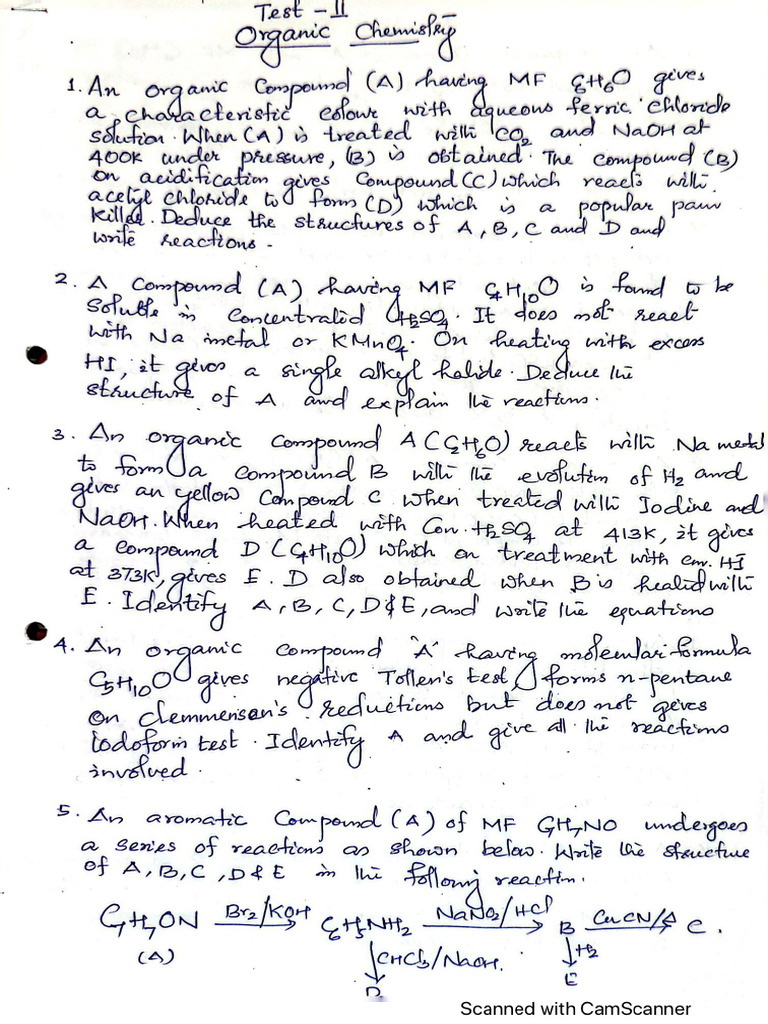 Test - II
Organic Chemistry
1. An organic Compound (A) having MF C6H6O gives
a characteristic colour with aqueous ferric chloride
solution. When (A) is treated with CO2 and NaOH at
400K under pressure, (B) is obtained. The compound (B)
on acidification gives Compound (C) which reacts with
acetyl chloride to form (D) which is a popular pain
killer. Deduce the structures of A, B, C and D and
write reactions.
2. A Compound (A) having MF C4H10O is found to be
soluble in concentrated H2SO4. It does not react
with Na metal or KMnO4. On heating with excess
HI, it gives a single alkyl halide. Deduce the
structure of A and explain the reactions.
3. An organic compound A (C2H6O) reacts with Na metal
to form a compound B with the evolution of H2 and
gives an yellow Compound C when treated with Iodine and
NaOH. When heated with Con. H2SO4 at 413K, it gives
a compound D (C4H10O) which on treatment with con. HI
at 373K, gives E. D also obtained when B is heated with
E. Identify A, B, C, D & E, and write the equations
4. An organic compound 'A' having molecular formula
C5H10O gives negative Tollen's test, forms n-pentane
on clemmensen's reductions but does not gives
iodoform test. Identify A and give all the reactions
involved.
5. An aromatic Compound (A) of MF C7H7NO undergoes
a series of reactions as shown below. Write the structure
of A, B, C, D & E in the following reaction.
C7H7ON Br2/KOH → C6H5NH2 NaNO2/HCl → B CuCN/Δ → C.
(A) ↓ CHCl3/NaOH. ↓ H2
D E
Scanned with CamScanner